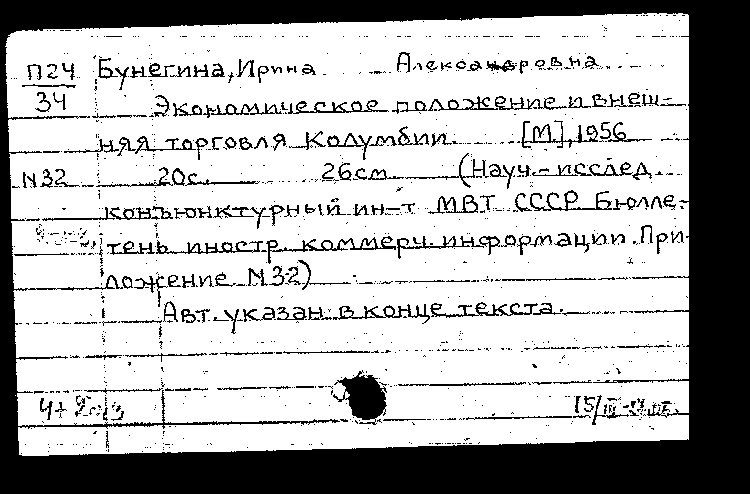 П24 Бунегина, Ирина Александровна
34 Экономическое положение и внеш-
няя торговля Колумбии. [М], 1956
N32 20с. 26см. (Науч.-исслед.
конъюнктурный ин-т МВТ СССР. Бюлле-
тень иностр. коммерч. информации. При-
ложение N32)
Авт. указан в конце текста.
4+
15/III